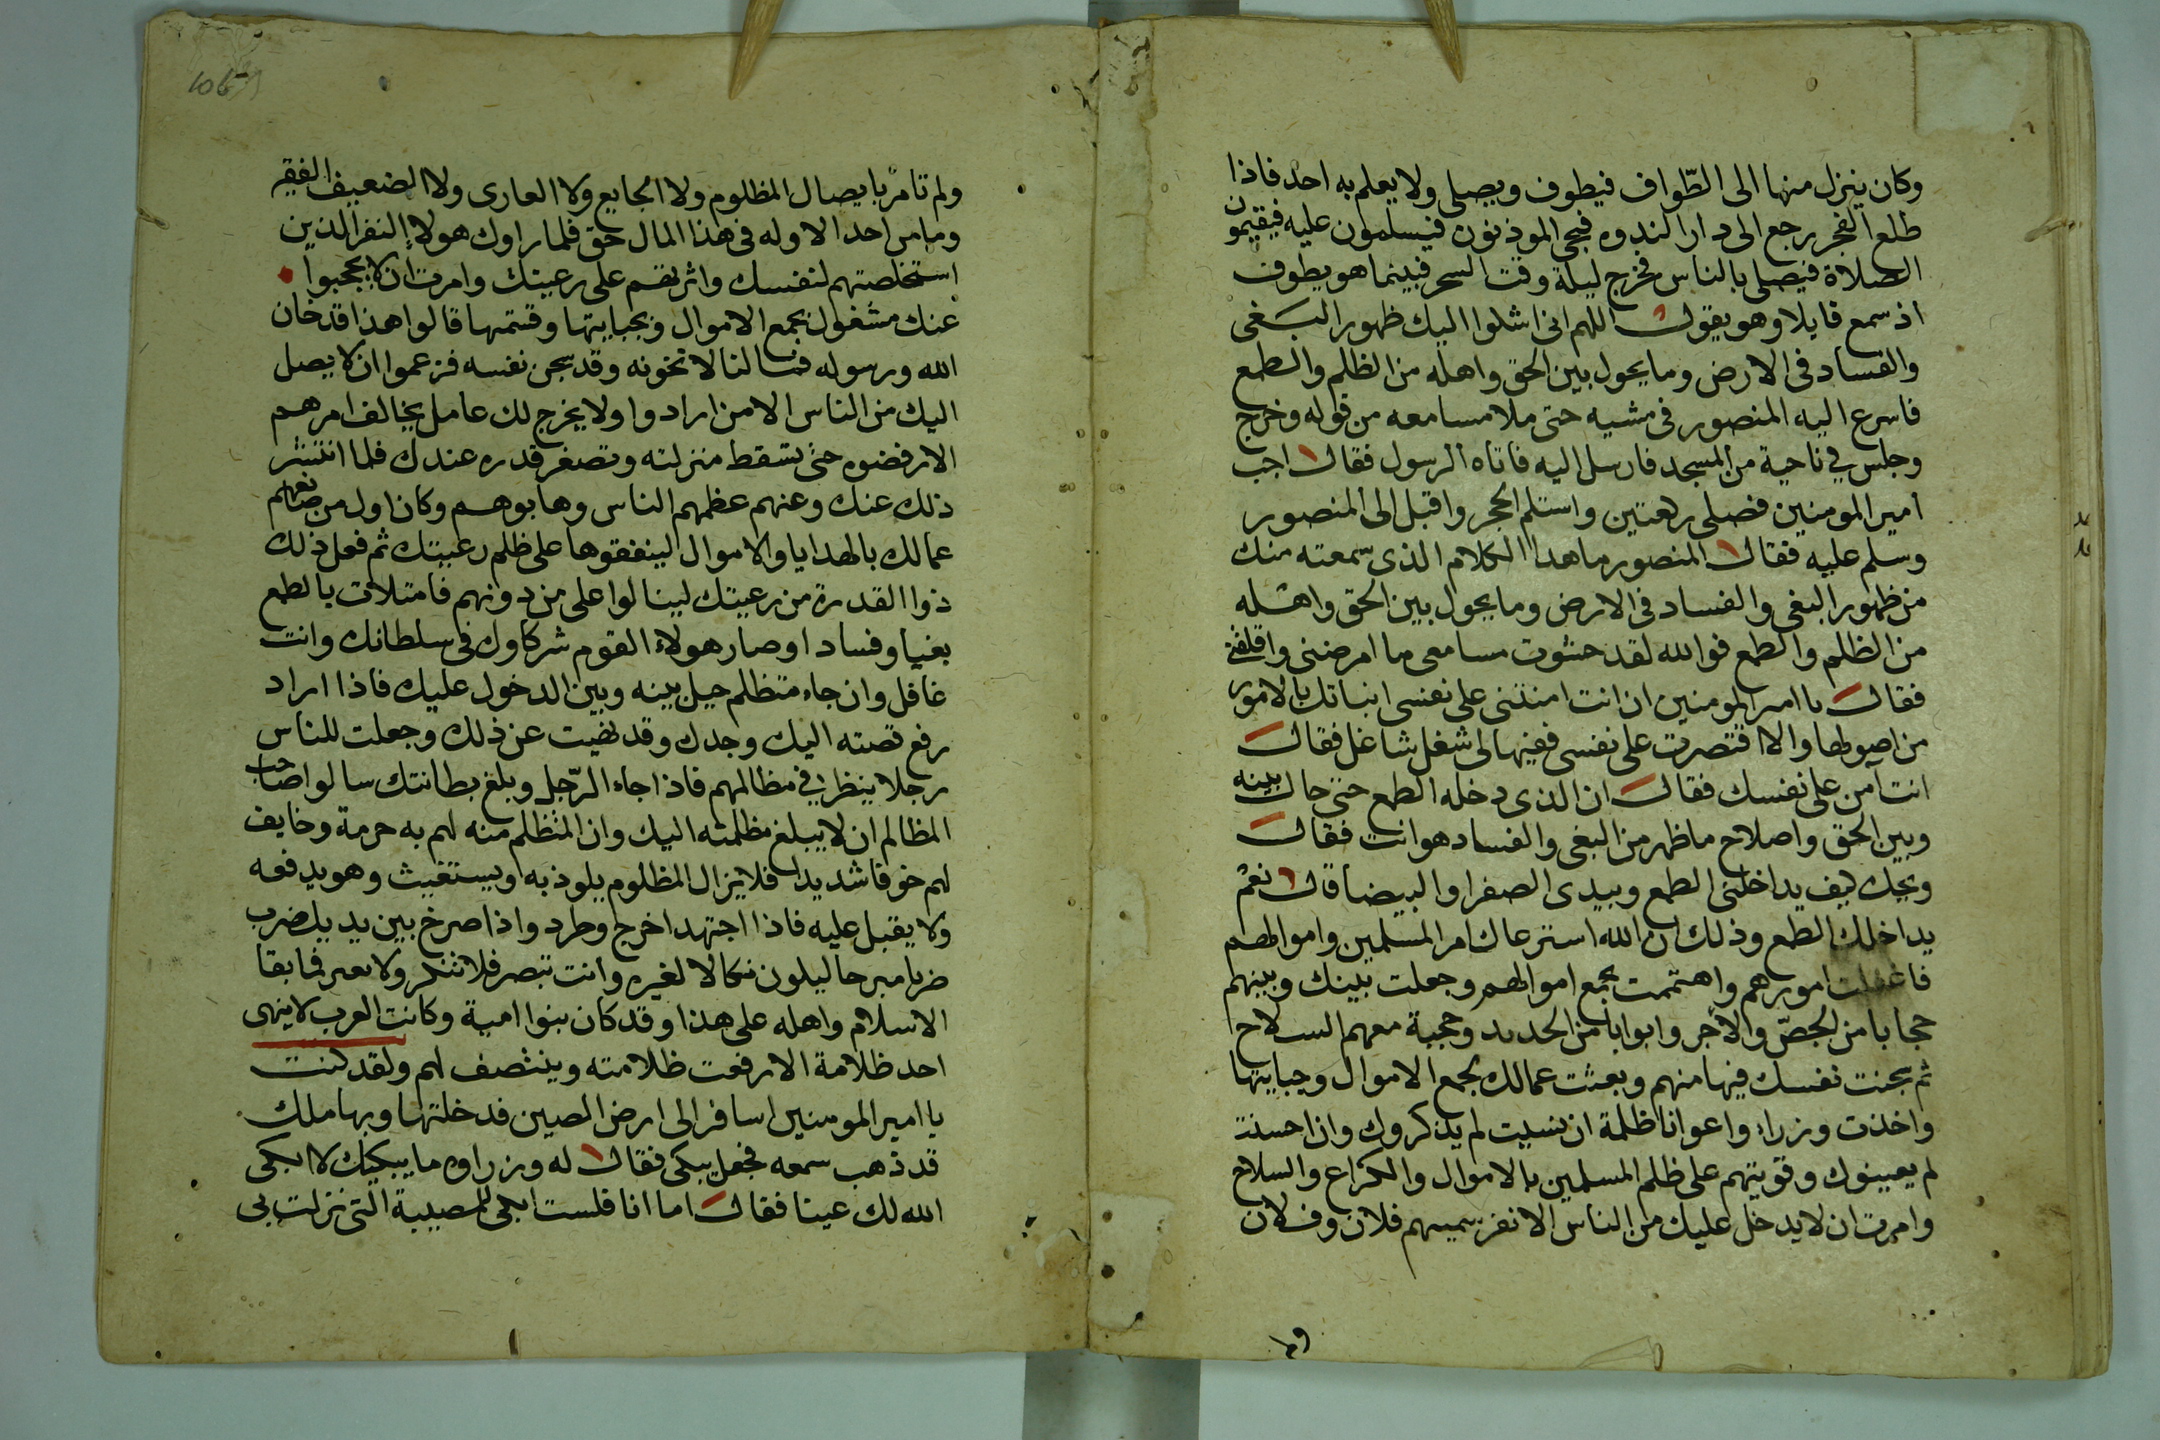 وكان ينزل منها الى الطّواف فيطوف ويصلى ولا يعلم به احد فاذا
طلع الفجر رجع الى دار الندوه فيجى الموذنون فيسلمون عليه فيقيمون
الصلاة فيصلى بالناس فخرج ليلة وقت السحر فبينما هو يطوف
اذ سمع قايلا وهو يقول اللهم انى اشلوا اليك ظهور البغى
والفساد فى الارض وما يحول بين الحق واهله من الظلم والطمع
فاسرع اليه المنصور فى مشيه حتى ملا مسامعه من قوله وخرج
وجلس فى ناحية من المسجد فارسل اليه فاتاه الرسول فقال اجب
امير المومنين فصلى ركعتين واستلم الحجر واقبل الى المنصور
وسلم عليه فقال المنصور ما هدا الكلام الذى سمعته منك
من ظهور البغى والفساد فى الارض وما يحول بين الحق واهله
من الظلم والطمع فوالله لقد حشوت مسامعى ما امرضنى واقلقنى
فقال يا امير المومنين ان انت امنتنى على نفسى انباتك بالامور
من اصولها والا اقتصرت على نفسى ففيها لى شغل شاغل فقال
انت آمن على نفسك فقال ان الذى دخله الطمع حتى حال بينه
وبين الحق واصلاح ما ظهر من البغى والفساد هو انت فقال
ويحك كيف يداخلنى الطمع وبيدى الصفرا والبيضا قال نعم
يداخلك الطمع وذلك ان الله استرعاك امر المسلمين واموالهم
فاغفلت امورهم واهتممت بجمع اموالهم وجعلت بينك وبينهم
حجابا من الجصّ والآجر وابوابا من الحديد وحجبة معهم السلاح
ثم سجنت نفسك فيها منهم وبعثت عمالك بجمع الاموال وجبايتها
واخذت وزراء واعوانا ظلمة ان نسيت لم يذكروك وان احسنت
لم يعينوك وقويتهم على ظلم المسلمين بالاموال والكراع والسلاح
وامرت ان لا يدخل عليك من الناس الا نفر سميهم فلان وفلان
ولم
ولم تامر بايصال المظلوم ولا الجايع ولا العارى ولا الضعيف الفقير
وما من احد الا وله فى هذا المال حق فلما راوك هولاء النفر الذين
استخلصتهم لنفسك واثرتهم على رعيتك وامرت ان لا يحجبوا
عنك مشغول بجمع الاموال وبجبايتها وقسمها قالوا هذا قد خان
الله ورسوله فما لنا لا تخونه وقد سجن نفسه فزعموا ان لا يصل
اليك من الناس الا من ارادوا ولا يخرج لك عامل يخالف امرهم
الا رفضوه حتى تسقط منزلته وتصغر قدره عندك فلما انتشر
ذلك عنك وعنهم عظمهم الناس وهابوهم وكان اول من صانعهم
عمالك بالهدايا والاموال لينفقوها على ظلم رعيتك ثم فعل ذلك
ذوا القدرة من رعيتك لينالوا على من دونهم فامتلات بالطمع
بغيا وفسادا وصار هولاء القوم شركاوك فى سلطانك وانت
غافل وان جاء متظلم حيل بينه وبين الدخول عليك فاذا اراد
رفع قصته اليك وجدك وقد نهيت عن ذلك وجعلت للناس
رجلا ينظر فى مظالمهم فاذا جاء الرّجل وبلغ بطانتك سالوا صاحب
المظالم ان لا يبلغ مظلمته اليك وان المتظلم منه لهم به حرمة وخايف
لهم خوفا شديدا فلا يزال المظلوم يلوذ به ويستغيث وهو يدفعه
ولا يقبل عليه فاذا اجتهد اخرج وطرد واذا صرخ بين يديك ضرب
ضربا مبرحا ليلون نكالا لغيره وانت تبصر فلا تنكر ولا تغير فما بقا
الاسلام واهله على هذا وقد كان بنوا امية وكانت العرب لا ينهى
احد ظلامة الا رفعت ظلامته وينتصف لهم ولقد كنت
يا امير المومنين اسافر الى ارض الصين فدخلتها وبها ملك
قد ذهب سمعه فجعل يبكى فقال له وزراوه ما يبكيك لا ابكى
الله لك عينا فقال اما انا فلست ابكى للمصيبة التى نزلت بى